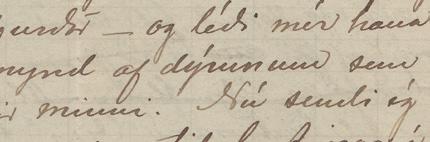 og léði mér hana
mynd af dýrunum sem
minni. Nú sendi ég